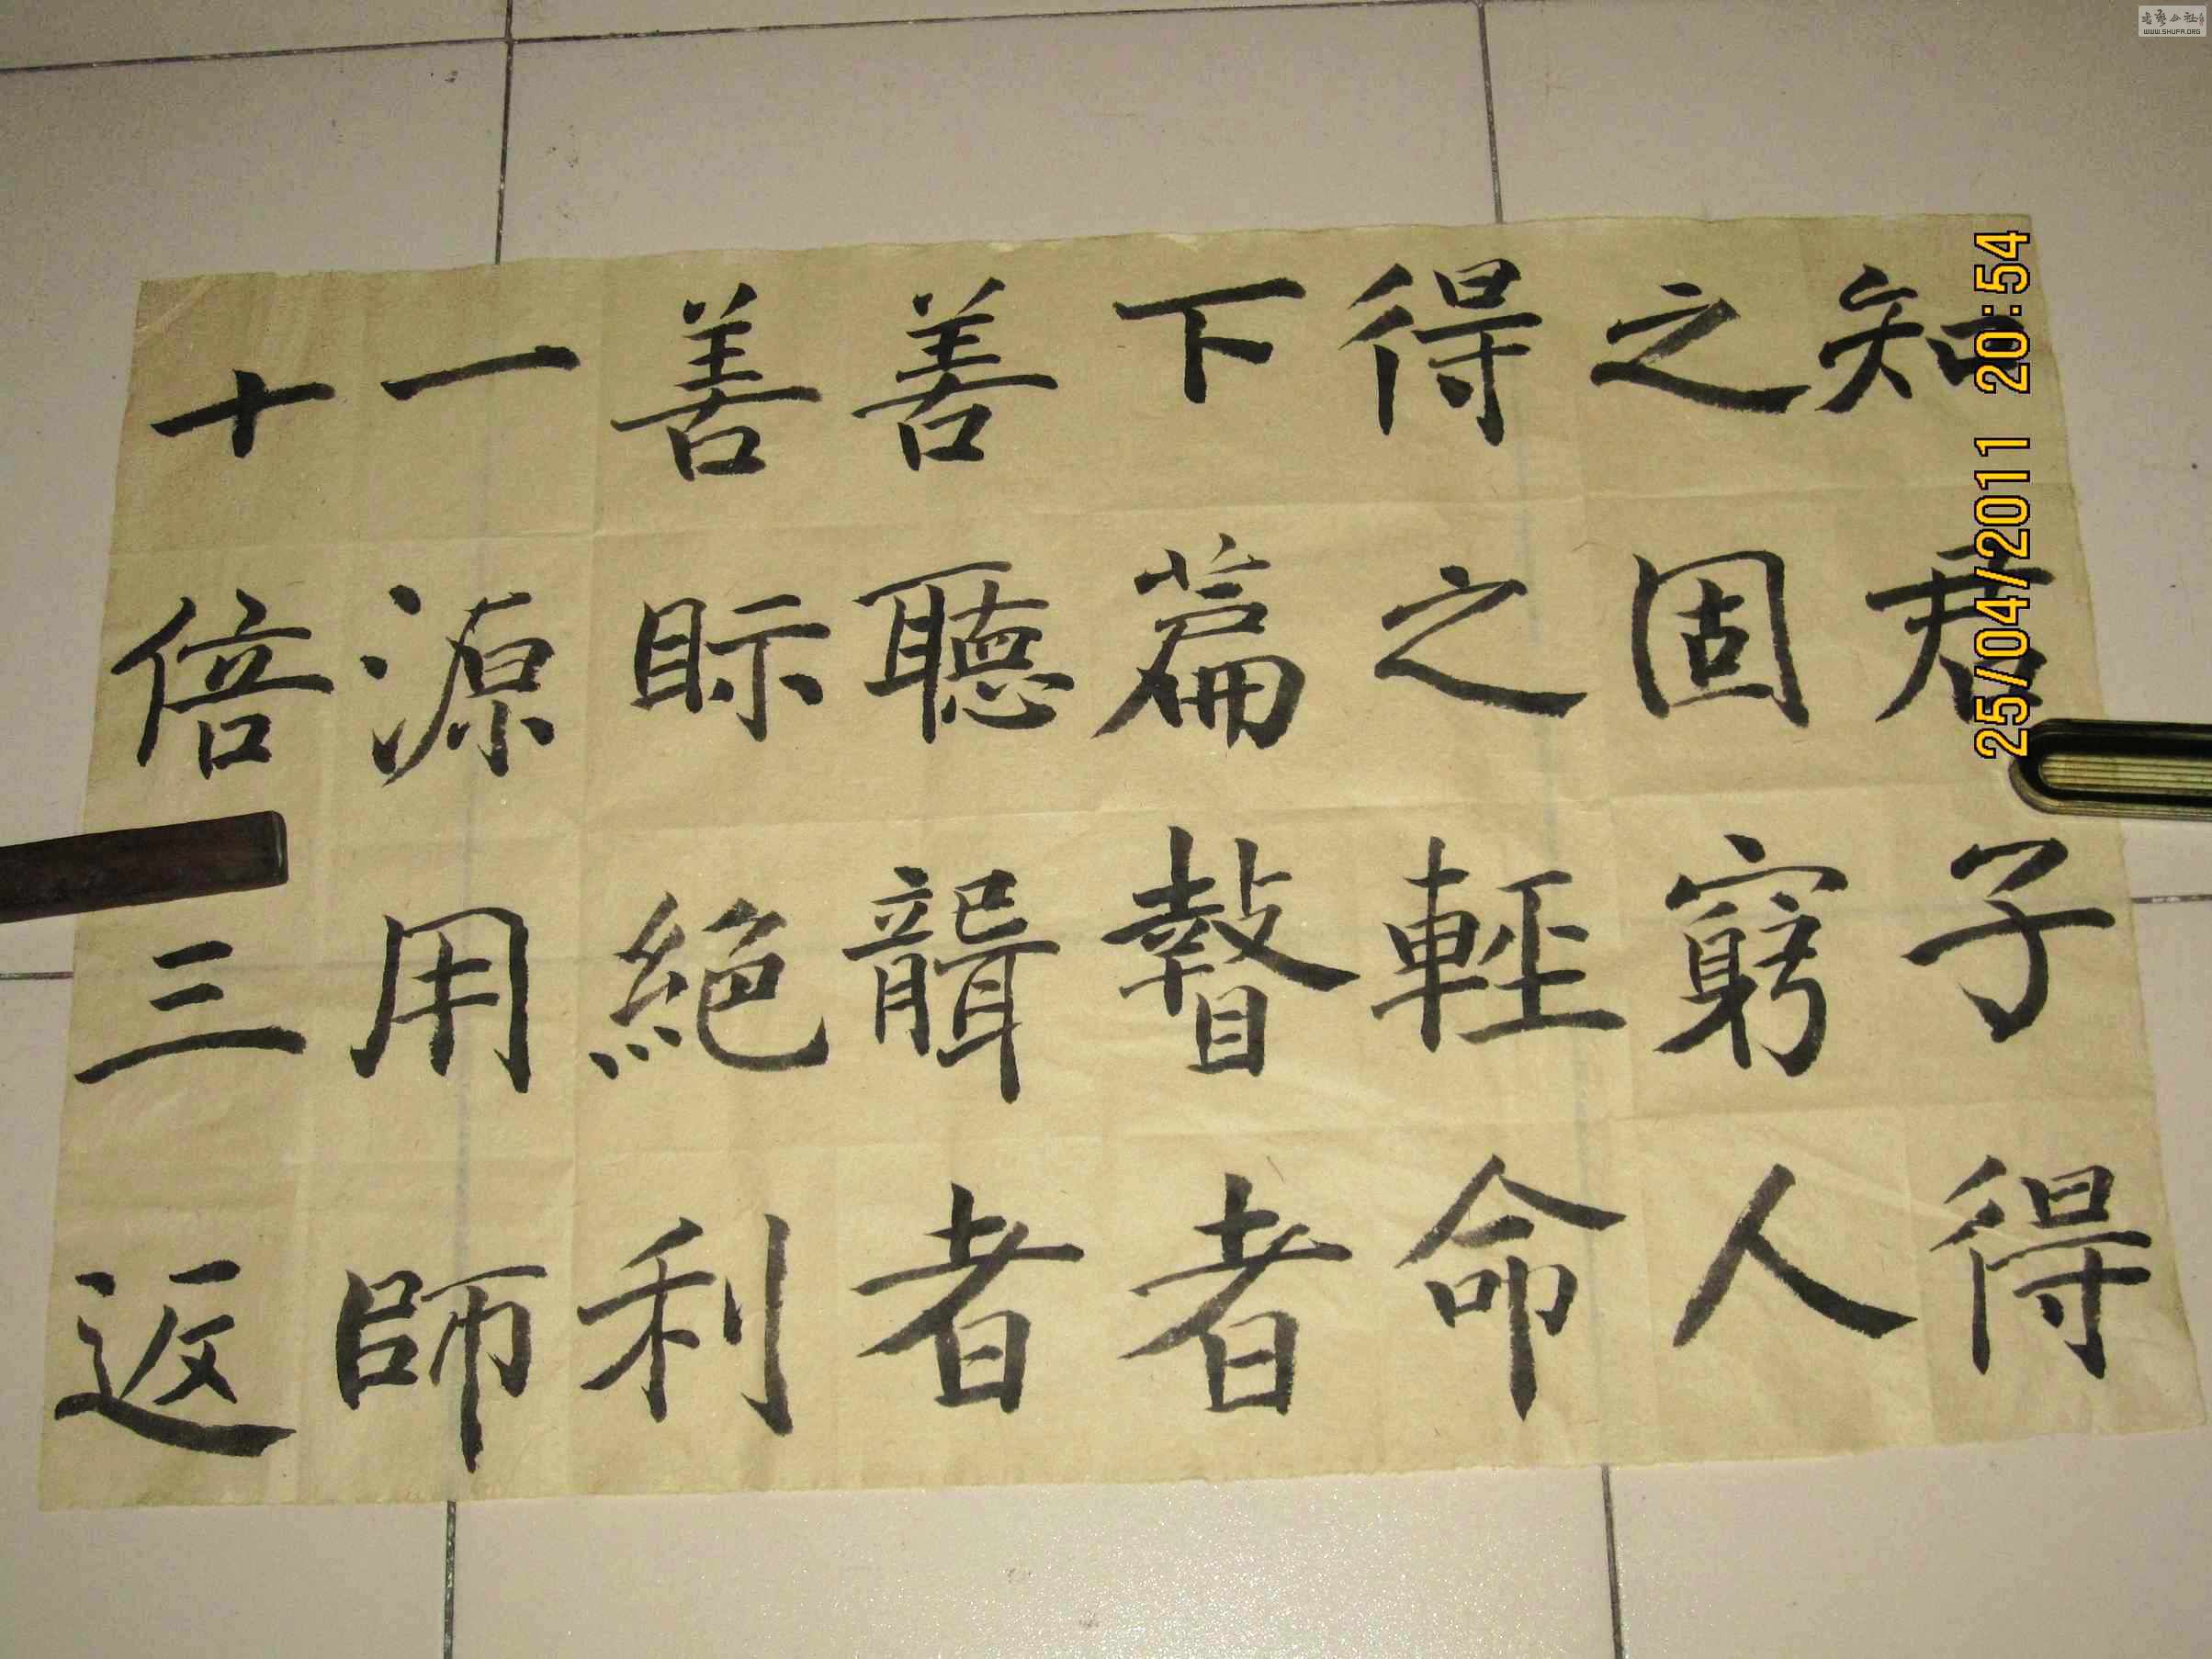 知君子得
之固窮人
得之輕命
下篇瞽者
善聽聾者
善眎絕利
一源用師
十倍三返
25/04/2011 20:54
WWW.SHUFA.ORG